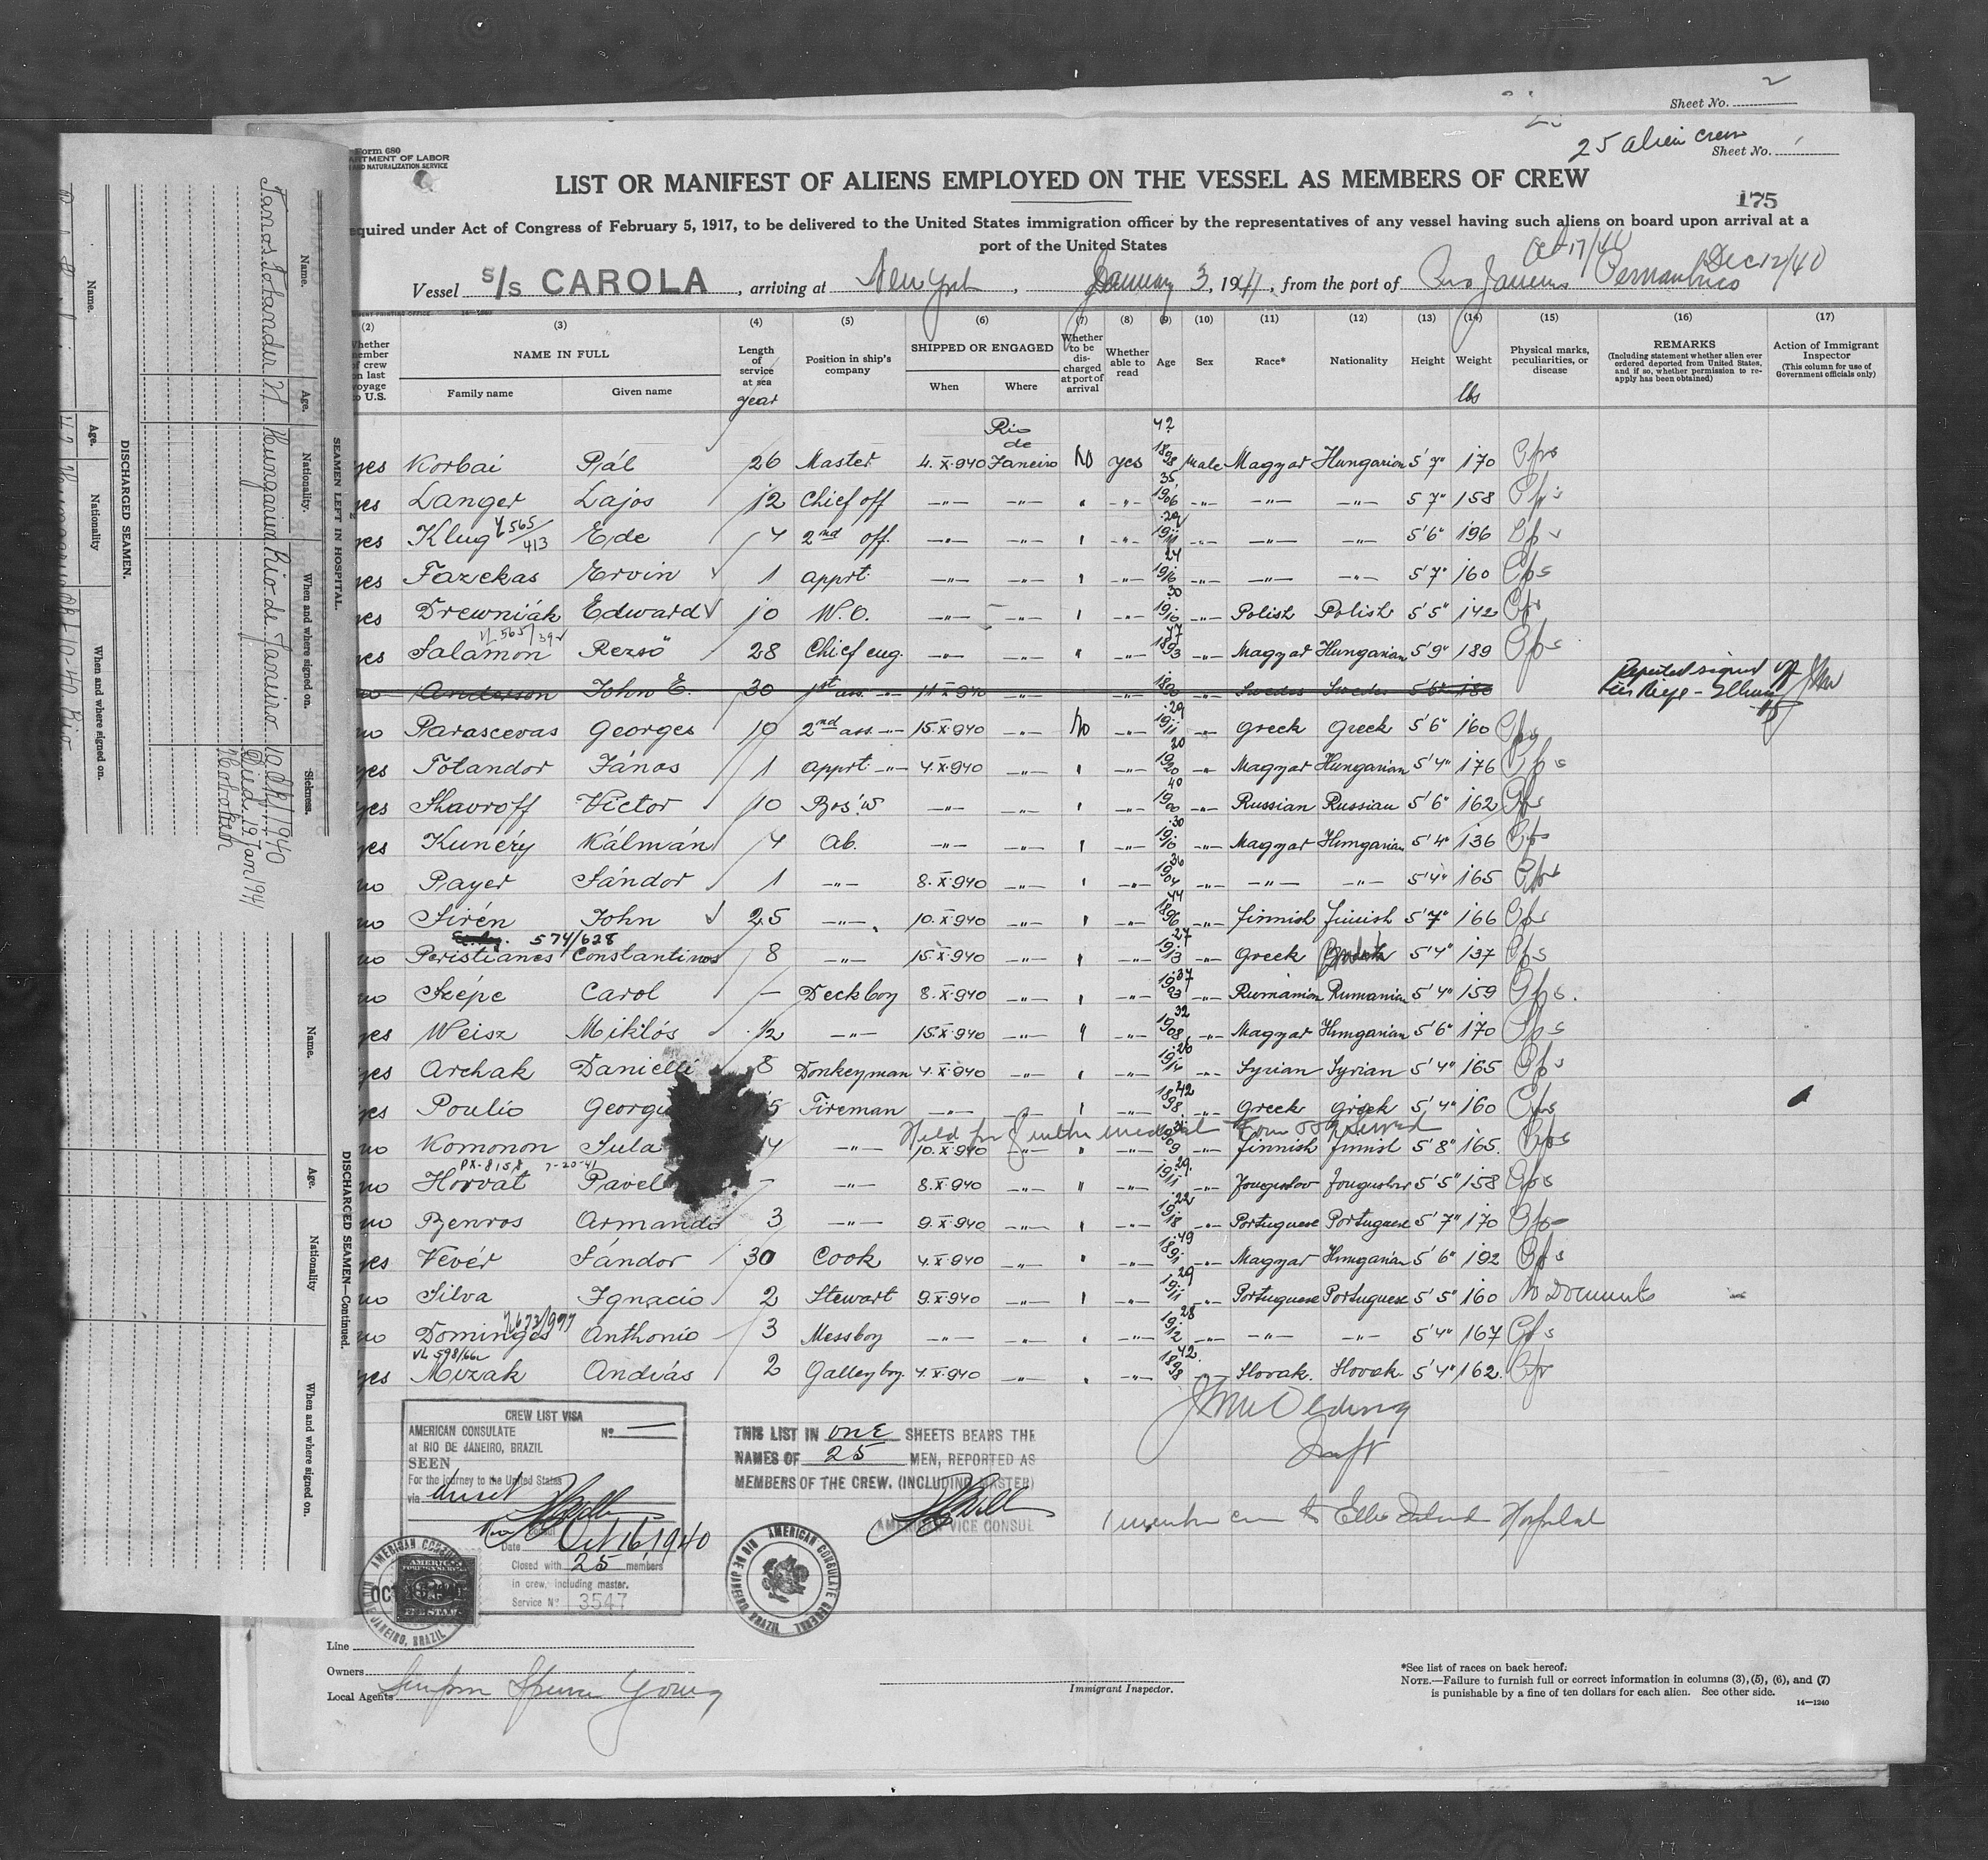 Sheet No. 2
25 alien crew
Sheet No. 1
Form 680
NATURALIZATION SERVICE
LIST OR MANIFEST OF ALIENS EMPLOYED ON THE VESSEL AS MEMBERS OF CREW
175
equired under Act of Congress of February 5, 1917, to be delivered to the United States immigration officer by the representatives of any vessel having such aliens on board upon arrival at a
port of the United States
Oct 17/40 Dec 12/40
Vessel S/S CAROLA, arriving at New York, January 3, 1941, from the port of Rio Janeiro Pernambuco
(2) (3) (4) (5) (6) (7) (8) (9) (10) (11) (12) (13) (14) (15) (16) (17)
NAME IN FULL
Family name Given name
Length of service at sea
year
Position in ship's company
SHIPPED OR ENGAGED
When Where
Whether to be discharged at port of arrival
Whether able to read
Age Sex Race* Nationality Height Weight
lbs
Physical marks, peculiarities, or disease
REMARKS
(Including statement whether alien ever ordered deported from United States, and if so, whether permission to reapply has been obtained)
Action of Immigrant Inspector
(This column for use of Government officials only)
yes Korbai Pál 26 Master 4.X.940 Rio de Janeiro No yes 42 1898 Male Magyar Hungarian 5'7" 170
yes Langer Lajos 12 Chief off —"— —"— " —"— 35 1906 —"— —"— —"— 5 7" 158
yes Klug 565/413 Ede 7 2nd off. —"— —"— —"— 29 1911 —"— —"— —"— 5'6" 196
yes Fazekas Ervin 1 apprt. —"— —"— —"— 24 1916 —"— —"— —"— 5'7" 160
yes Drewniák Edward 10 W.O. —"— —"— —"— 30 1910 —"— Polish Polish 5'5" 142
yes Salamon Rezső 28 Chief eng. —"— —"— " —"— 47 1893 —"— Magyar Hungarian 5'9" 189
no Anderson John E. 30 1st ass. —"— 11.X.940 —"— —"— 1890 —"— Swedes Swedes 5'6" 180 Rejected signed off
no Parascevas Georges 10 2nd ass. —"— 15.X.940 —"— No —"— 29 1911 —"— Greek Greek 5'6" 160
yes Tolandor János 1 apprt. —"— 4.X.940 —"— —"— 20 1920 —"— Magyar Hungarian 5'4" 176
yes Shavroff Victor 10 Bos'w —"— —"— —"— 40 1900 —"— Russian Russian 5'6" 162
yes Kunéry Kálmán 7 Ab. —"— —"— —"— 30 1910 —"— Magyar Hungarian 5'4" 136
no Payer Sándor 1 —"— 8.X.940 —"— —"— 36 1904 —"— —"— —"— 5'4" 165
no Sirén John 25 —"— 10.X.940 —"— —"— 44 1896 —"— Finnish Finnish 5'7" 166
574/628
no Peristianes Constantinos 8 —"— 15.X.940 —"— —"— 27 1913 —"— Greek 5'4" 137
no Szépe Carol — Deckboy 8.X.940 —"— —"— 37 1903 —"— Rumanian Rumanian 5'4" 159
yes Weisz Miklós 12 —"— 15.X.940 —"— " —"— 32 1908 —"— Magyar Hungarian 5'6" 170
yes Archak Danielli 8 Donkeyman 4.X.940 —"— —"— 26 1914 —"— Syrian Syrian 5'4" 165
yes Poulio 5 Fireman —"— —"— —"— 42 1898 —"— Greek Greek 5'4" 160
Held for further medical Exam
no Komonon Sula —"— 10.X.940 —"— " —"— —"— Finnish Finnish 5'8" 165.
PX-8158 7-20-41
no Horvat Pavel — —"— 8.X.940 —"— " —"— 29 1911 —"— Jougoslov Jougoslov 5'5" 158
no Benros Armando 3 —"— 9.X.940 —"— —"— 22 1918 —"— Portuguese Portuguese 5'7" 170
yes Vevér Sándor 30 Cook 4.X.940 —"— —"— 49 1891 —"— Magyar Hungarian 5'6" 192
no Silva Ignacio 2 Stewart 9.X.940 —"— —"— 29 1911 —"— Portuguese Portuguese 5'5" 160 No Documents
no Domingos Anthonio 3 Messboy —"— —"— —"— 28 1912 —"— —"— —"— 5'4" 167
yes Mozak András 2 Galley boy. 4.X.940 —"— —"— 42 1898 —"— Slovak. Slovak 5'4" 162.
CREW LIST VISA
AMERICAN CONSULATE No —
at RIO DE JANEIRO, BRAZIL
SEEN
For the journey to the United States
via direct
Date Oct 16 1940
Closed with 25 members
in crew, including master.
Service No 3547
THIS LIST IN ONE SHEETS BEARS THE
NAMES OF 25 MEN, REPORTED AS
MEMBERS OF THE CREW. (INCLUDING MASTER)
AMERICAN VICE CONSUL
AMERICAN CONSULATE GENERAL
RIO DE JANEIRO BRAZIL
1 member crew to Ellis Island Hospital
Line
Owners
Local Agents Simpson Spence Young
Immigrant Inspector.
*See list of races on back hereof.
NOTE.—Failure to furnish full or correct information in columns (3), (5), (6), and (7)
is punishable by a fine of ten dollars for each alien. See other side.
14—1240
SEAMEN LEFT IN HOSPITAL.
Name. Age. Nationality. When and where signed on. Sickness.
Janos Tolander 21 Hungarian Rio de Janeiro 10 Oct/1940
Died 19 Jan 1941
DISCHARGED SEAMEN.
Name. Age. Nationality When and where signed on.
DISCHARGED SEAMEN—Continued.
Name. Age. Nationality When and where signed on.